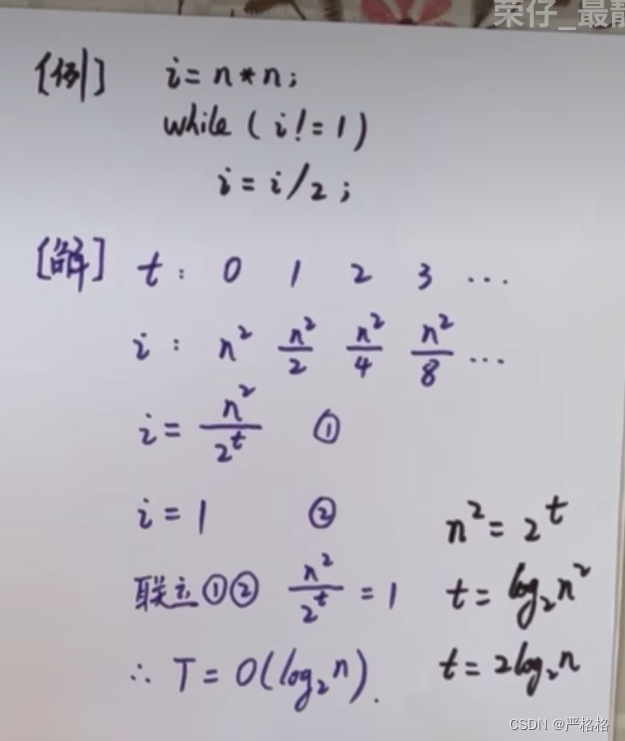 荣仔_最靓
[例] i=n*n;
while(i!=1)
i=i/2;
[解] t: 0 1 2 3 ...
i: n² n²/2 n²/4 n²/8 ...
i=n²/2^t ①
i=1 ②
联立①② n²/2^t=1
∴ T=O(log₂n).
n²=2^t
t=log₂n²
t=2log₂n
CSDN @严格格